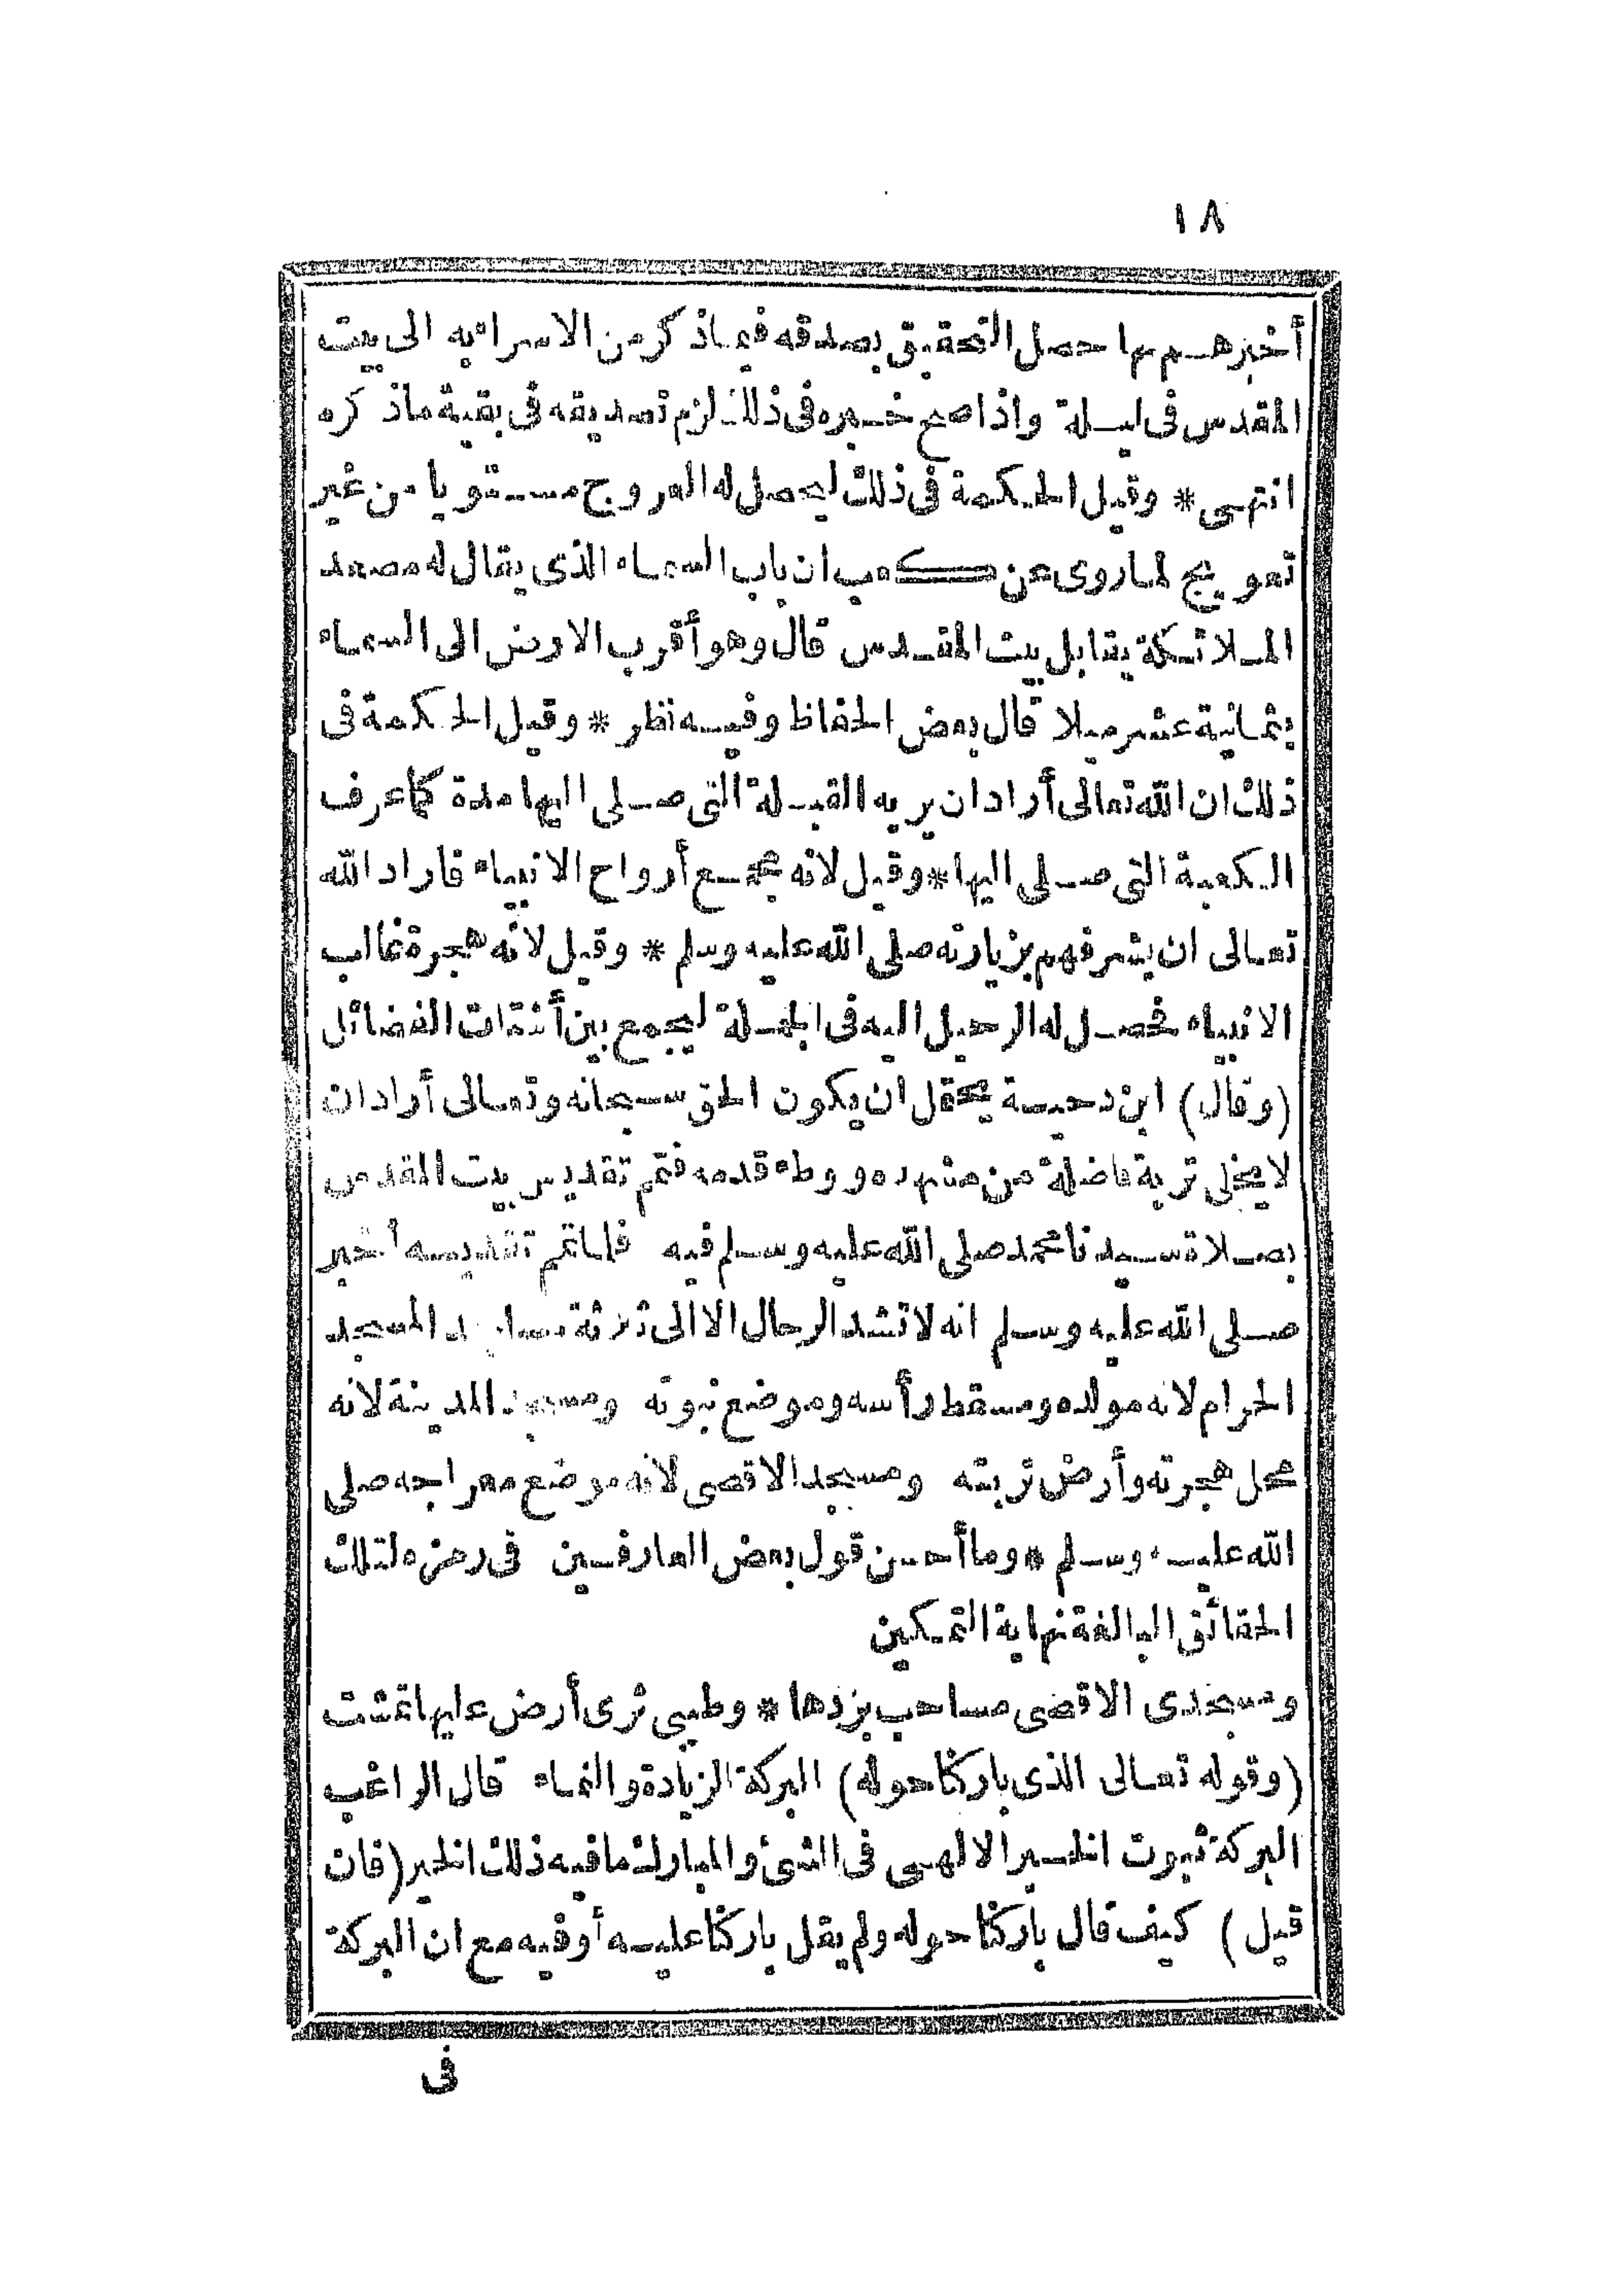 ١٨
أخبرهم بها حصل التحقيق بصدقه فيما ذكر من الاسراء به الى بيت
المقدس فى ليلة واذا صح خبره فى ذلك لزم تصديقه فى بقية ماذكره
انتهى * وقيل الحكمة فى ذلك ليحصل له العروج مستويا من غير
تعويج لما روى عن كعب ان باب السماء الذى يقال له مصعد
الملائكة يقابل بيت المقدس قال وهو أقرب الارض الى السماء
بثمانية عشر ميلا قال بعض الحفاظ وفيه نظر * وقيل الحكمة فى
ذلك ان الله تعالى أراد ان يريه القبلة التى صلى اليها مدة كما عرف
الكعبة التى صلى اليها * وقيل لانه مجمع أرواح الانبياء فاراد الله
تعالى ان يشرفهم بزيارته صلى الله عليه وسلم * وقيل لانه هجرة غالب
الانبياء فحصل له الرحيل اليه فى الجملة ليجمع بين أشتات الفضائل
(وقال) ابن دحية يحتمل ان يكون الحق سبحانه وتعالى أراد ان
لا يخلى تربة فاضلة من مشهده ووطء قدمه فتم تقديس بيت المقدس
بصلاة سيدنا محمد صلى الله عليه وسلم فيه فلما تم تقديسه أخبر
صلى الله عليه وسلم انه لا تشد الرحال الا الى ثلاثة مساجد المسجد
الحرام لانه مولده ومسقط رأسه وموضع نبوته ومسجد المدينة لانه
محل هجرته وأرض تربته ومسجد الاقصى لانه موضع معراجه صلى
الله عليه وسلم * وما أحسن قول بعض العارفين فى رمزه لتلك
الحقائق البالغة نهاية التمكين
ومسجدى الاقصى مساحب بردها * وطيبى ثرى أرض عليها تمشت
(وقوله تعالى الذى باركنا حوله) البركة الزيادة والنماء قال الراغب
البركة ثبوت الخير الالهى فى الشئ والمبارك ما فيه ذلك الخير (فان
قيل) كيف قال باركنا حوله ولم يقل باركنا عليه أو فيه مع ان البركة
فى